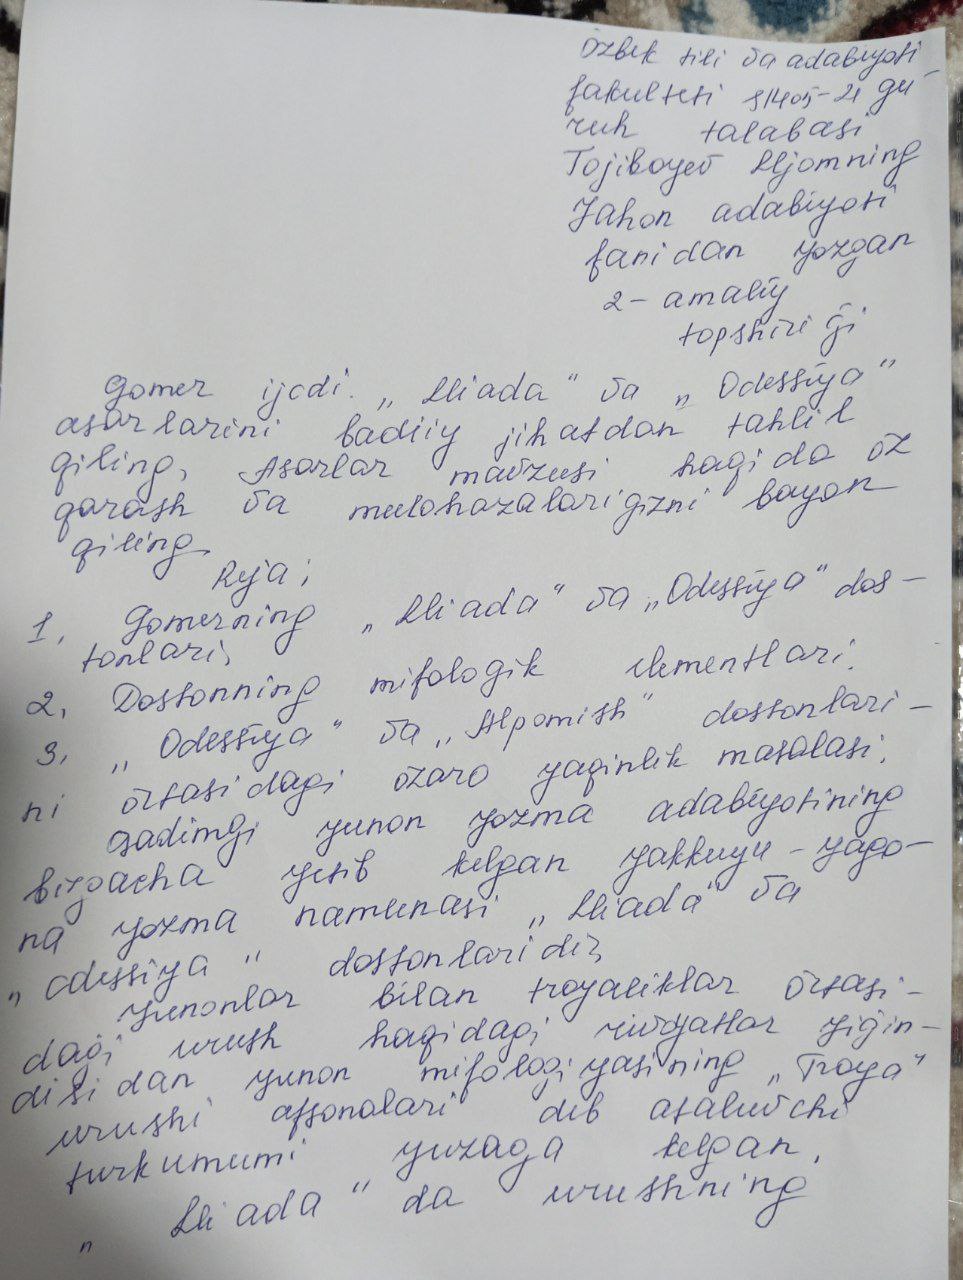 Özbek tili va adabiyoti
fakulteti S1405-21 gu-
ruh talabasi
Tojiboyev Iljomning
Jahon adabiyoti
fanidan yozgan
2-amaliy
topshirig'i
Gomer ijodi. „Iliada" va „Odesseya"
asarlarini badiiy jihatdan tahlil
qiling, Asarlar mavzusi haqida öz
qarash va mulohazalarigizni bayon
qiling.
Reja;
1. Gomerning „Iliada" va „Odesseya" dos-
tonlari;
2. Dostonning mifologik elementlari.
3. „Odesseya" va „Alpomish" dostonlari-
ni örtasidagi özaro yaqinlik masalasi.
Qadimgi yunon yozma adabiyotining
bizgacha yetib kelgan yakkayu-yago-
na yozma namunasi „Iliada" va
„Odesseya" dostonlaridir,
Yunonlar bilan troyaliklar örtasi-
dagi urush haqidagi rivoyatlar yig'in-
disidan yunon mifologiyasining „Troya"
urushi afsonalari deb ataluvchi
turkumumi yuzaga kelgan.
„Iliada" da urushning